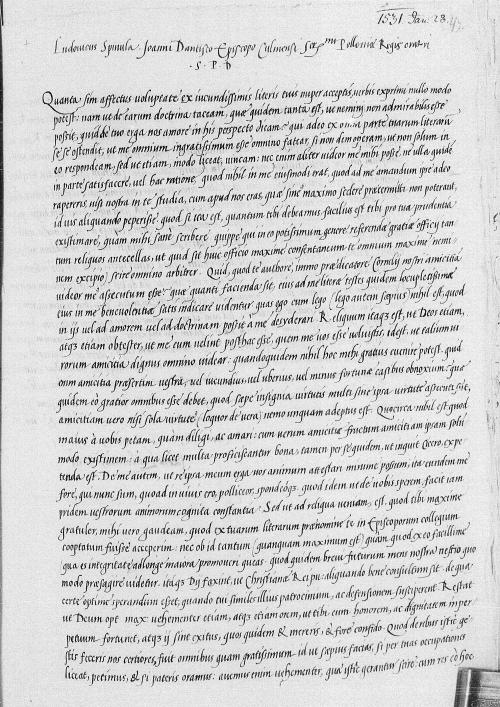 1531 Jan. 28.
Ludovicus Spinula Joanni Dantisco Episcopo Culmensi Poloniae Regis oratori
S. P. D
Quanta sim affectus voluptate ex iucundissimis literis tuis nuper acceptis, verbis exprimi nullo modo
potest: nam ut de earum doctrina taceam, quae quidem tanta est, ut nemini non admirabilis esse
possit, quid de tuo erga nos amore in his perspecto dicam? qui adeo ex omni parte tuarum literarum
se se ostendit, ut me omnium ingratissimum esse omnino fatear, si non dem operam, ut non solum in
eo respondeam, sed ut etiam, modo liceat, vincam: nec enim aliter videor me mihi posse, ne ulla quidem
in parte satisfacere, vel hac ratione, quod nihil in me eiusmodi erat, quod ad me amandum per adeo
rapereris, nisi nostra in te studia, cum apud nos eras, quae sine maximo scelere praetermitti non poterant,
id vis aliquando peperisse: quod si ita est, quantum tibi debeamus, facilius est tibi pro tua prudentia
existimare, quam mihi sane scribere: quippe qui in eo potissimum genere referendae gratiae officii tan
tum reliquos antecellas, ut quid sit huic officio maxime consentaneum te omnium maxime (nemi
nem excipio) scire omnino arbitrer. Quid, quod te authore, immo praedicatore Cornelii nostri amicitia
videor me assecutum esse? quae quanti facienda sit, eius ad me literae testes quidem locupletissimae
eius in me benevolentiae satis indicare videntur, quas ego cum lego (lego autem saepius) nihil est, quod
in iis vel ad amorem vel ad doctrinam possit a me desyderari. Reliquum itaque est, ut Deos etiam,
atque etiam obtester, ut me eum velint posthac esse, quem me vos esse voluistis, idest, ut talium vi
rorum amicitia dignus omnino videar: quandoquidem nihil hoc mihi gratius evenire potest. quid
enim amicitia praesertim vestra, vel iucundius, vel uberius, vel minus fortunae casibus obnoxium? quae
quidem eo gratior omnibus esse debet, quod saepe insignia virtutis multi sine ipsa virtute assecuti sint,
amicitiam vero nisi sola virtute (loquor de vera) nemo unquam adeptus est. Quocirca nihil est quod
maius a vobis petam, quam diligi, ac amari: cum verum amicitiae fructum amicitiam ipsam solum
modo existimem: a qua licet multa proficiscantur bona, tamen per se quidem, ut inquit Cicero, expe
tenda est. De me autem, ut re ipsa meum erga vos animum attestari minime possum, ita eundem me
fore, qui nunc sum, quoad in vivis ero, polliceor, spondeoque. quod idem ut de vobis sperem, facit iam
pridem vestrorum animorum cognita constantia. Sed ut ad reliqua veniam, est, quod tibi maxime
gratuler, mihi vero gaudeam, quod ex tuarum literarum praenomine te in Episcoporum collegium
cooptatum fuisse acceperim: nec ob id tantum (quanquam maximum est) quam quod ex eo facillime
qua es integritate ad longe maiora promoveri queas: quod quidem brevi futurum mens nostra nescio quo
modo praesagire videtur. itaque Dii faxint, ut Christianae Reipu. aliquando bene consultum sit: de qua
certe optime sperandum esset, quando tui similes illius patrocinium, ac defensionem susciperent. Restat
ut Deum opt max vehementer etiam, atque etiam orem, ut tibi eum honorem, ac dignitatem in per
petuum fortunet, atque ii sint exitus, quos quidem & mereris, & fore confido. Quod de rebus istic ge
stis feceris nos certiores, fuit omnibus quam gratissimum. id ut saepius facias, si per tuas occupationes
liceat, petimus, & si pateris oramus: avemus enim vehementer, quae istic gerantur scire: cum res eo hoc